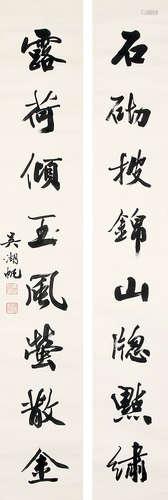 石砌披錦山牕點繡
露荷傾玉風螢散金
吳湖帆